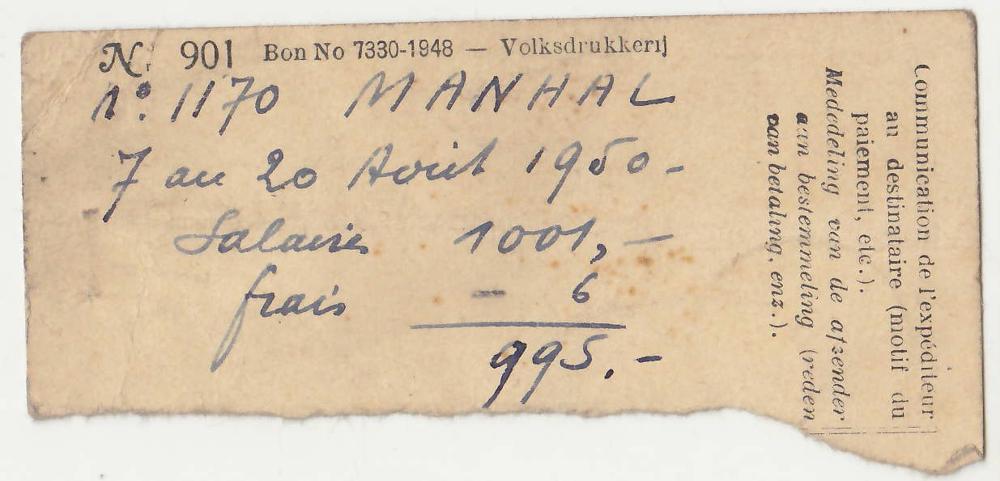 Nr 901 Bon No 7330-1948 — Volksdrukkerij
no. 1170 MANHAL
7 au 20 Août 1950-
Salaires 1001,—
frais — 6
995.-
Communication de l'expéditeur
au destinataire (motif du
paiement, etc.).
Mededeling van de afzender
aan bestemmeling (reden
van betaling, enz.).